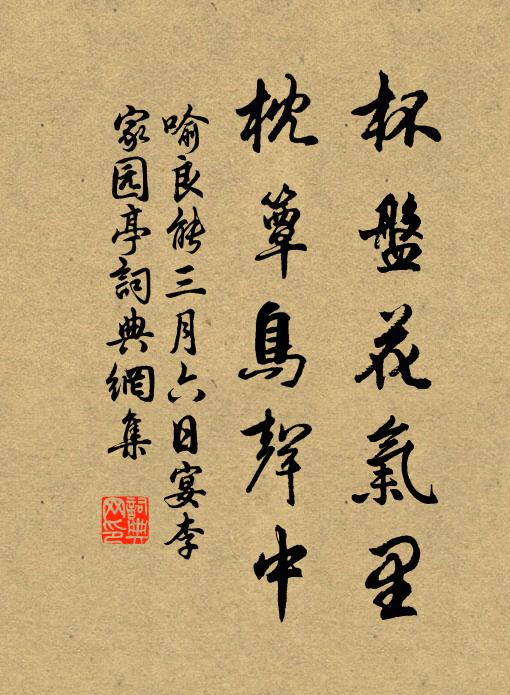 杯盤花氣里
枕簟鳥聲中
喻良能三月六日宴李
家园亭詞典網集
詞典
网印